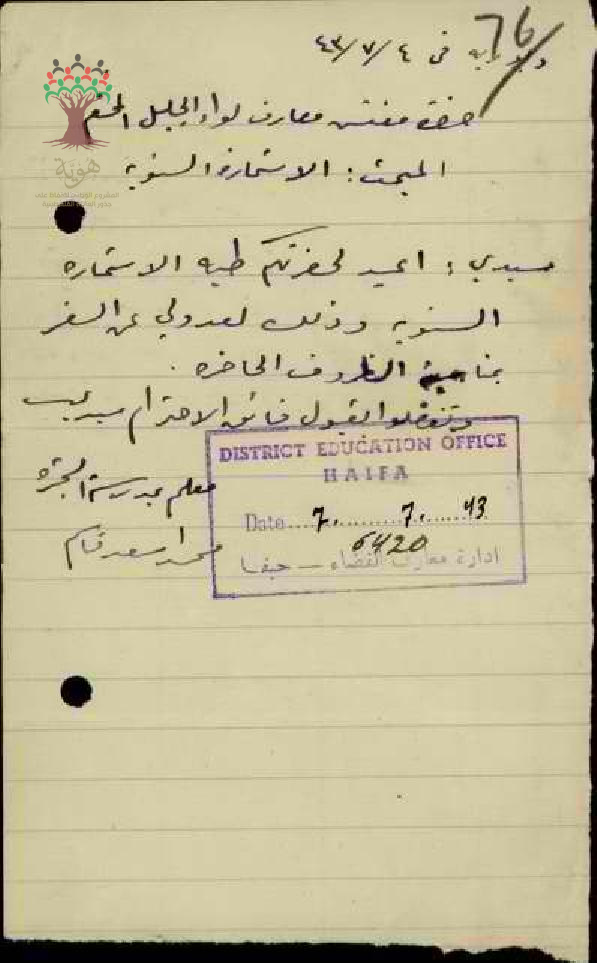 76
في ٤/٧/٤٣
حضرة مفتش معارف لواء الجليل المحترم
المبحث: الاستمارة السنوية
سيدي: اعيد لحضرتكم طيه الاستماره
السنويه وذلك لعدولي عن السفر
الظروف الحاضره.
وتفضلوا بقبول فائق الاحترام سيدي
معلم مدرسة الشجرة
محمد اسعد قاسم
DISTRICT EDUCATION OFFICE
HAIFA
Date....7.........7.......43
6420
ادارة معارف القضاء — حيفا
هوية